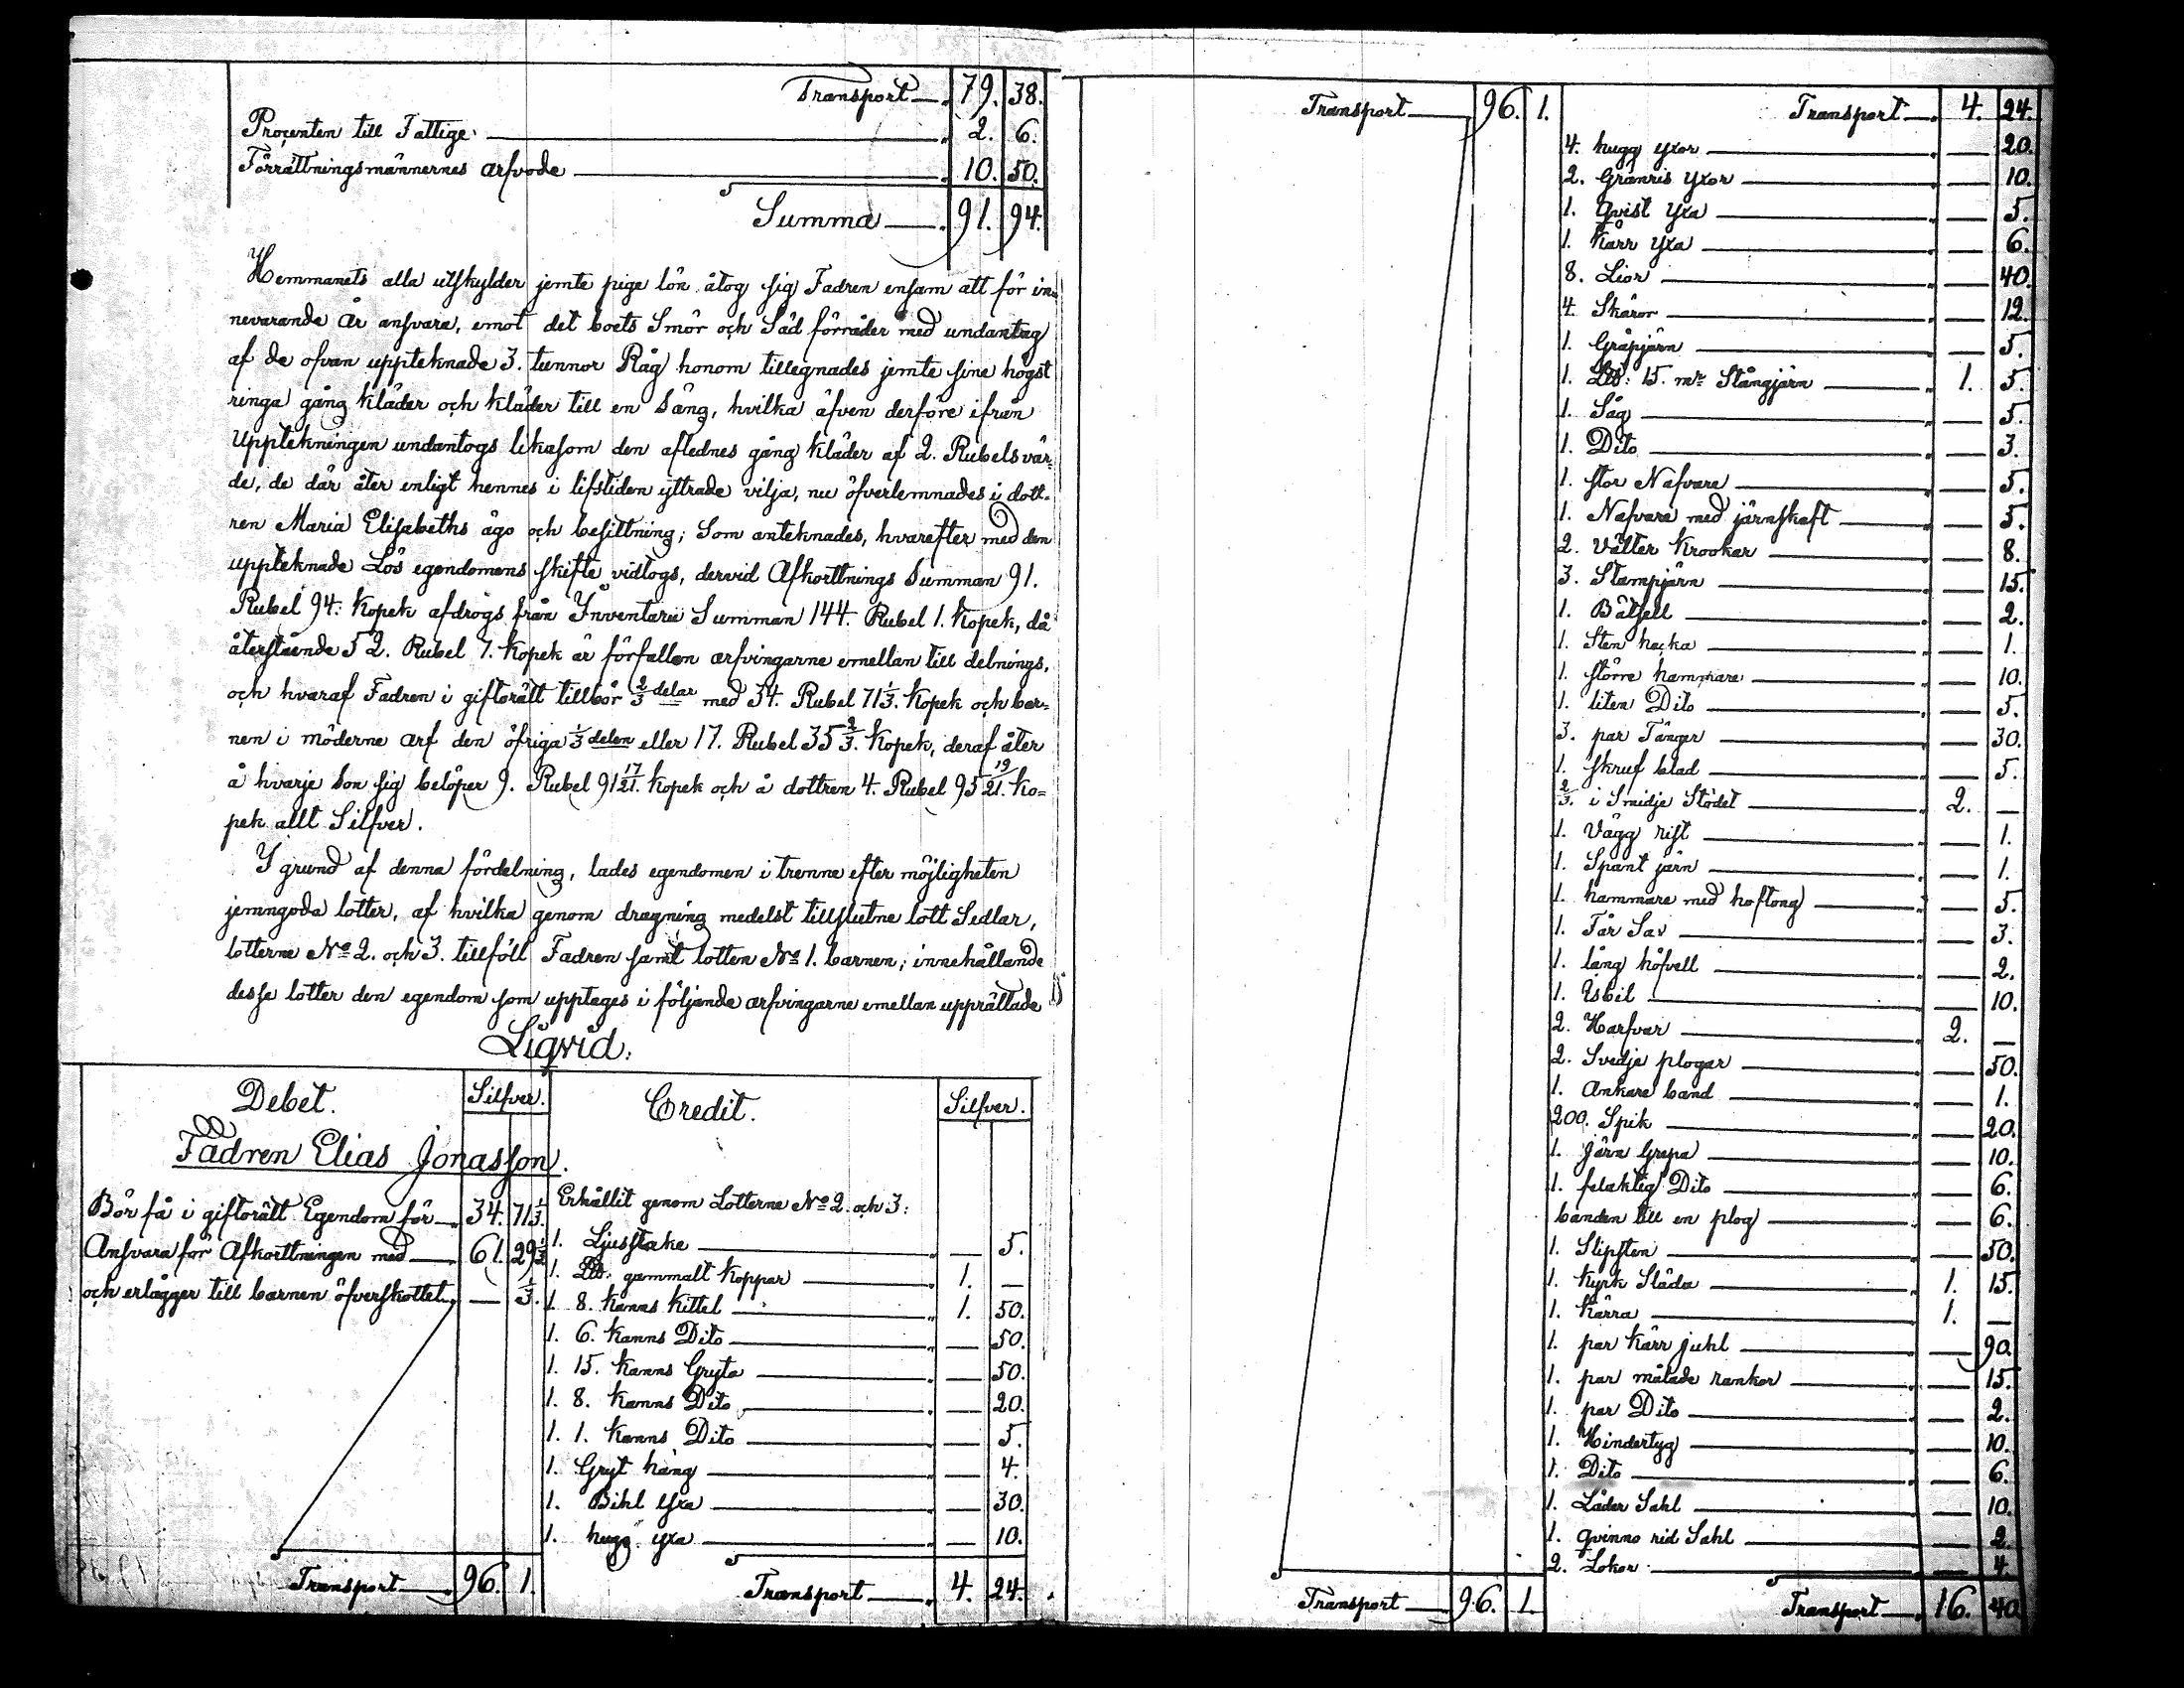 Transport 79. 38.
Procenten till Fattige 2. 6.
Förrättningsmännernes arfvode 10. 50.
Summa 91. 94.
Hemmanets alla utskylder jemte pige lön åtog sig Fadren ensam att för in=
nevarande År ansvara, emot det boets Smör och Säd förråder med undantag
af de ofvan uppteknade 3. tunnor Råg honom tillegnades jemte sine högst
ringa gång kläder och kläder till en Säng, hvilka äfven derföre ifrån
Upptekningen undantogs likasom den aflednes gång kläder af 2. Rubels vär=
de, de där åter enligt hennes i lifstiden yttrade vilja, nu öfverlemnades i dott=
ren Maria Elisabeths ägo och besittning; Som anteknades, hvarefter med den
uppteknade Lös egendomens skifte vidtogs, dervid Afkorttnings Summan 91.
Rubel 94: Kopek afdrogs från Inventarii Summan 144. Rubel 1. Kopek, då
återstående 52. Rubel 7. Kopek är förfallen arfvingarne emellan till delnings,
och hvaraf Fadren i giftorätt tillkör 2/3 delar med 34. Rubel 71 1/3. Kopek och bar=
nen i möderne arf den öfriga 1/3 delen eller 17. Rubel 35 2/3. Kopek, deraf åter
å hvarje Son sig belöper 9. Rubel 91 17/21. Kopek och å dottren 4. Rubel 95 19/21. Ko=
pek allt Silfver.
I grund af denna fördelning, lades egendomen i trenne efter möjligheten
jemngoda lotter, af hvilka genom dragning medelst tillslutne lott Sedlar,
lotterne No 2. och 3. tillföll Fadren samt lotten No 1. barnen; innehållande
desse lotter den egendom som upptages i följande arfvingarne emellan upprättade
Liqvid:
Debet. Silfver.
Fadren Elias Jonasson.
Bör få i giftorätt Egendom för 34. 71 1/3.
Ansvara för Afkorttningen med 61. 29 1/3
och erlägger till barnen öfverskottet — 1/3.
Transport 96. 1.
Credit. Silfver.
Erhållit genom Lotterne No 2. och 3:
1. Ljusstake — 5.
1. L℔. gammalt Koppar 1. —
1. 8. Kanns Kittel 1. 50.
1. 6. Kanns Dito — 50.
1. 15. Kanns Gryta — 50.
1. 8. Kanns Dito — 20.
1. 1. Kanns Dito — 5.
1. Gryt häng — 4.
1. Bihl Yxa — 30.
1. hugg yxa — 10.
Transport 4. 24.
Transport 96. 1.
Transport 96. 1.
Transport 4. 24.
4. hugg yxor — 20.
2. Granris Yxor — 10.
1. Qvist Yxa — 5.
1. Kärr Yxa — 6.
8. Lior — 40.
4. Skäror — 12.
1. Gråpjärn — 5.
1. L℔: 15. mr Stångjärn 1. 5.
1. Såg — 5.
1. Dito — 3.
1. stor Nafvare — 5.
1. Nafvare med järnskaft — 5.
2. Välter Krookar — 8.
3. Stampjärn — 15.
1. Båtsell — 2.
1. Sten hacka — 1.
1. större hammare — 10.
1. liten Dito — 5.
3. par Tänger — 30.
1. skruf blad — 5.
2/3. i Smidje Stödet 2. —
1. Vägg rist — 1.
1. Spant järn — 1.
1. hammare med hoftong — 5.
1. Får Sax — 3.
1. lång höfvell — 2.
1. Isbil — 10.
2. Harfvar 2. —
2. Svedje plogar — 50.
1. Ankare band — 1.
200. Spik — 20.
1. Järn Grepa — 10.
1. felaktig Dito — 6.
banden till en plog — 6.
1. Slipsten — 50.
1. Kyrk Släda 1. 15.
1. Kärra 1. —
1. par Kärr juhl — 90.
1. par målade rankor — 15.
1. par Dito — 2.
1. Hindertyg — 10.
1. Dito — 6.
1. Läder Sahl — 10.
1. qvinno rid Sahl — 2.
2. Lokor — 4.
Transport 16. 40.